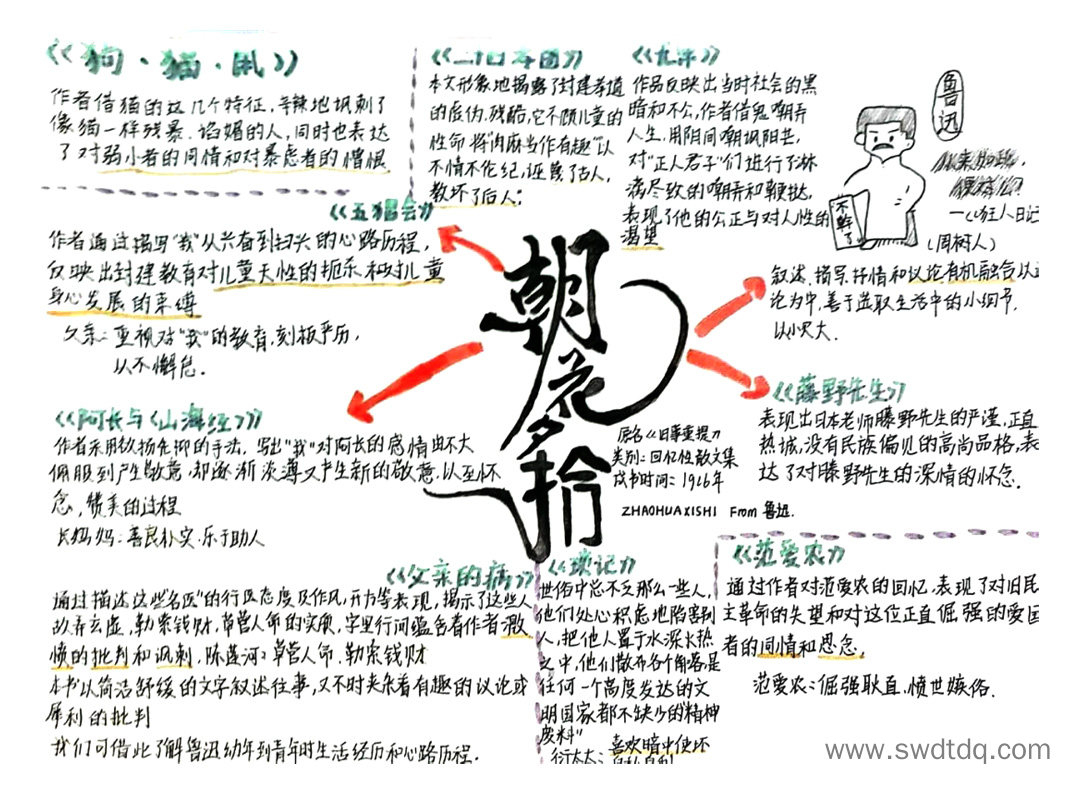 《狗·猫·鼠》
作者借猫的这几个特征，辛辣地讽刺了
像猫一样残暴、谄媚的人，同时也表达
了对弱小者的同情和对暴虐者的憎恨
《二十四孝图》
本文形象地揭露了封建孝道
的虚伪、残酷，它不顾儿童的
性命，将"肉麻当作有趣""以
不情不伦纪，诬蔑了古人，
教坏了后人；
《无常》
作品反映出当时社会的黑
暗和不公，作者借鬼嘲弄
人生，用阴间嘲讽阳世，
对"正人君子"们进行了淋
漓尽致的嘲弄和鞭挞，
表现了他的公正与对人性的
渴望
鲁迅
不干了
从来如此，
便对么？
—《狂人日记
(周树人)
《五猖会》
作者通过描写"我"从兴奋到扫兴的心路历程，
反映出封建教育对儿童天性的扼杀和对儿童
身心发展的束缚
父亲：重视对"我"的教育，刻板严历，
以不懈怠．
朝花夕拾
叙述、描写、抒情和议论有机融合以
论为中，善于选取生活中的小细节，
以小见大．
《藤野先生》
表现出日本老师藤野先生的严谨，正直
热诚，没有民族偏见的高尚品格，表
达了对藤野先生的深情的怀念．
原名《旧事重提》
类别：回忆性散文集
成书时间：1926年
ZHAOHUAXISHI From 鲁迅．
《阿长与《山海经》》
作者采用欲扬先抑的手法，写出"我"对阿长的感情由不大
佩服到产生敬意，却逐渐淡薄又产生新的敬意，以至怀
念，赞美的过程
长妈妈：善良朴实，乐于助人
《父亲的病》
通过描述这些名医"的行医态度及作风，开方等表现，揭示了这些人
故弄玄虚，勒索钱财，草营人命的实质，字里行间蕴含着作者激
愤的批判和讽刺，陈莲河：草营人命，勒索钱财
本书以简洁舒缓的文字叙述往事，又不时夹杂着有趣的议论或
犀利的批判
我们可借此了解鲁迅幼年到青年时生活经历和心路历程．
《琐记》
世俗中总不乏那么一些人，
他们处心积虑地陷害别
人，把他人置于水深火热
之中，他们散布各个角落是
任何一个高度发达的文
明国家都不缺少的"精神
废料"
衍太太：喜欢暗中使坏
自私自利
《范爱农》
通过作者对范爱农的回忆，表现了对旧民
主革命的失望和对这位正直倔强的爱国
者的同情和思念，
范爱农：倔强耿直，愤世嫉俗．
www.swdtdq.com